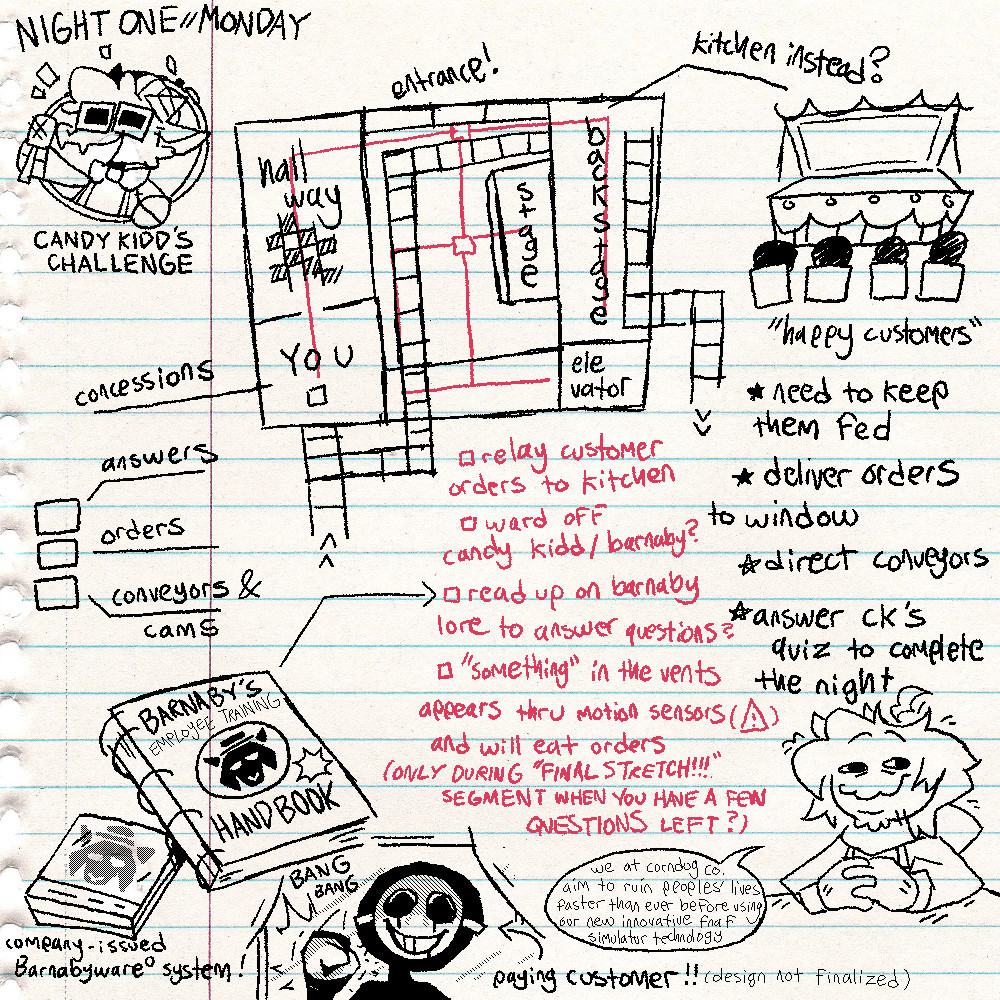 NIGHT ONE//MONDAY
CANDY KIDD'S
CHALLENGE
entrance!
kitchen instead?
hall
way
stage
backstage
YOU
ele
vator
concessions
answers
orders
conveyors &
cams
"happy customers"
★ need to keep
them fed
★ deliver orders
to window
★ direct conveyors
★ answer CK's
quiz to complete
the night
□ relay customer
orders to kitchen
□ ward off
candy kidd/barnaby?
□ read up on barnaby
lore to answer questions?
□ "something" in the vents
appears thru motion sensors (⚠)
and will eat orders
(ONLY DURING "FINAL STRETCH!!!"
SEGMENT WHEN YOU HAVE A FEW
QUESTIONS LEFT?)
BARNABY'S
EMPLOYEE TRAINING
HANDBOOK
company-issued
Barnabyware° system!
BANG
BANG
we at corndog co.
aim to ruin peoples' lives
faster than ever before using
our new innovative fnaf
simulator technology
paying customer!! (design not finalized)